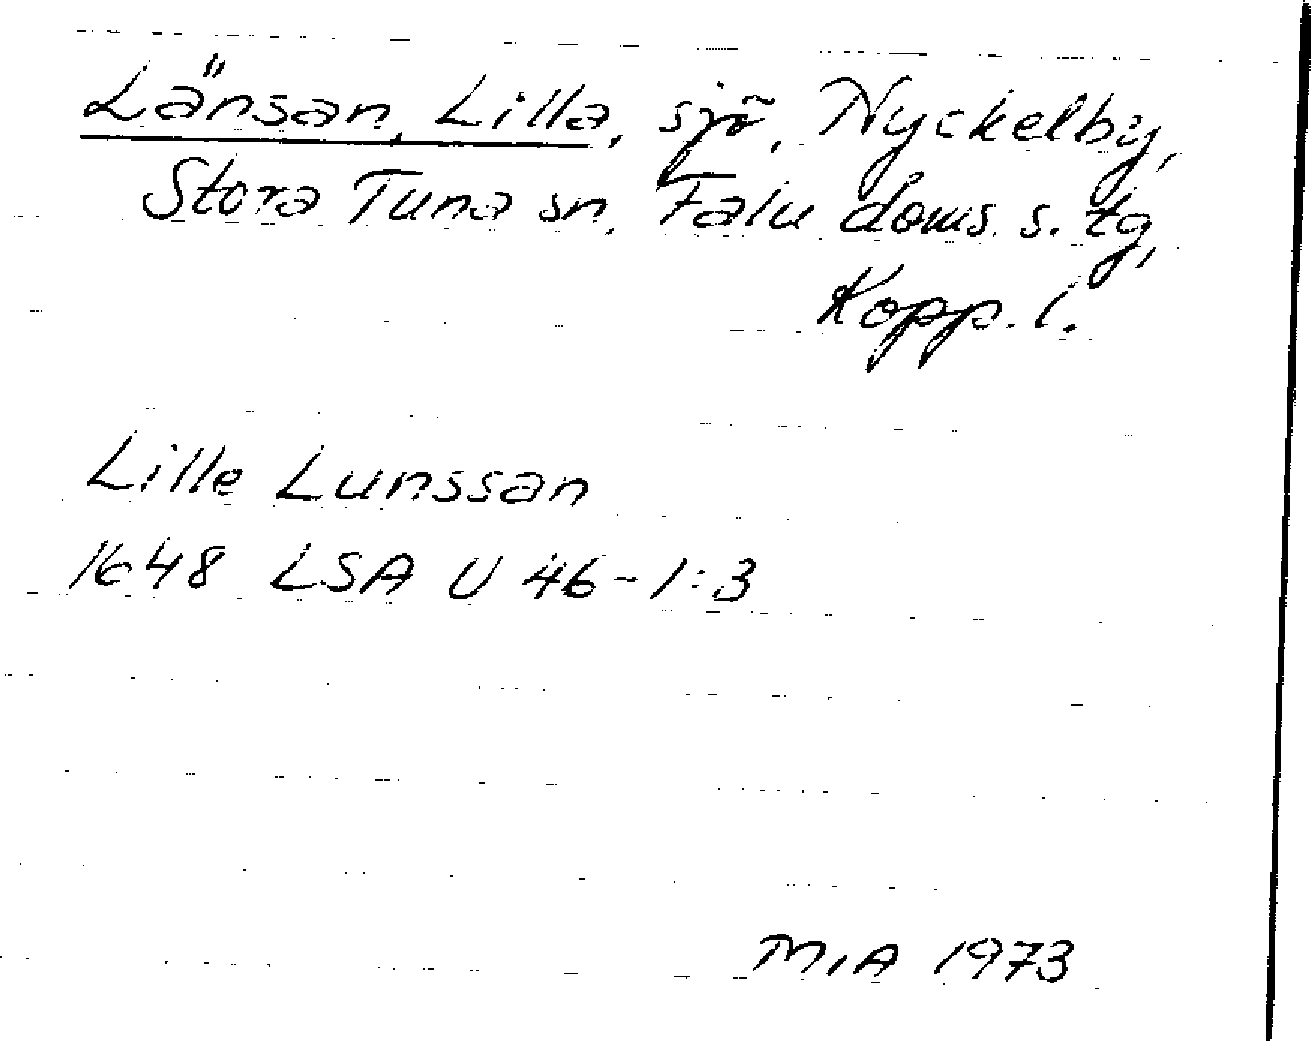 Länsan, Lilla, sjö, Nyckelby,
Stora Tuna sn, Falu doms. s. tg,
Kopp. l.
Lille Lunssan
1648 LSA U 46-1:3
M,A 1973